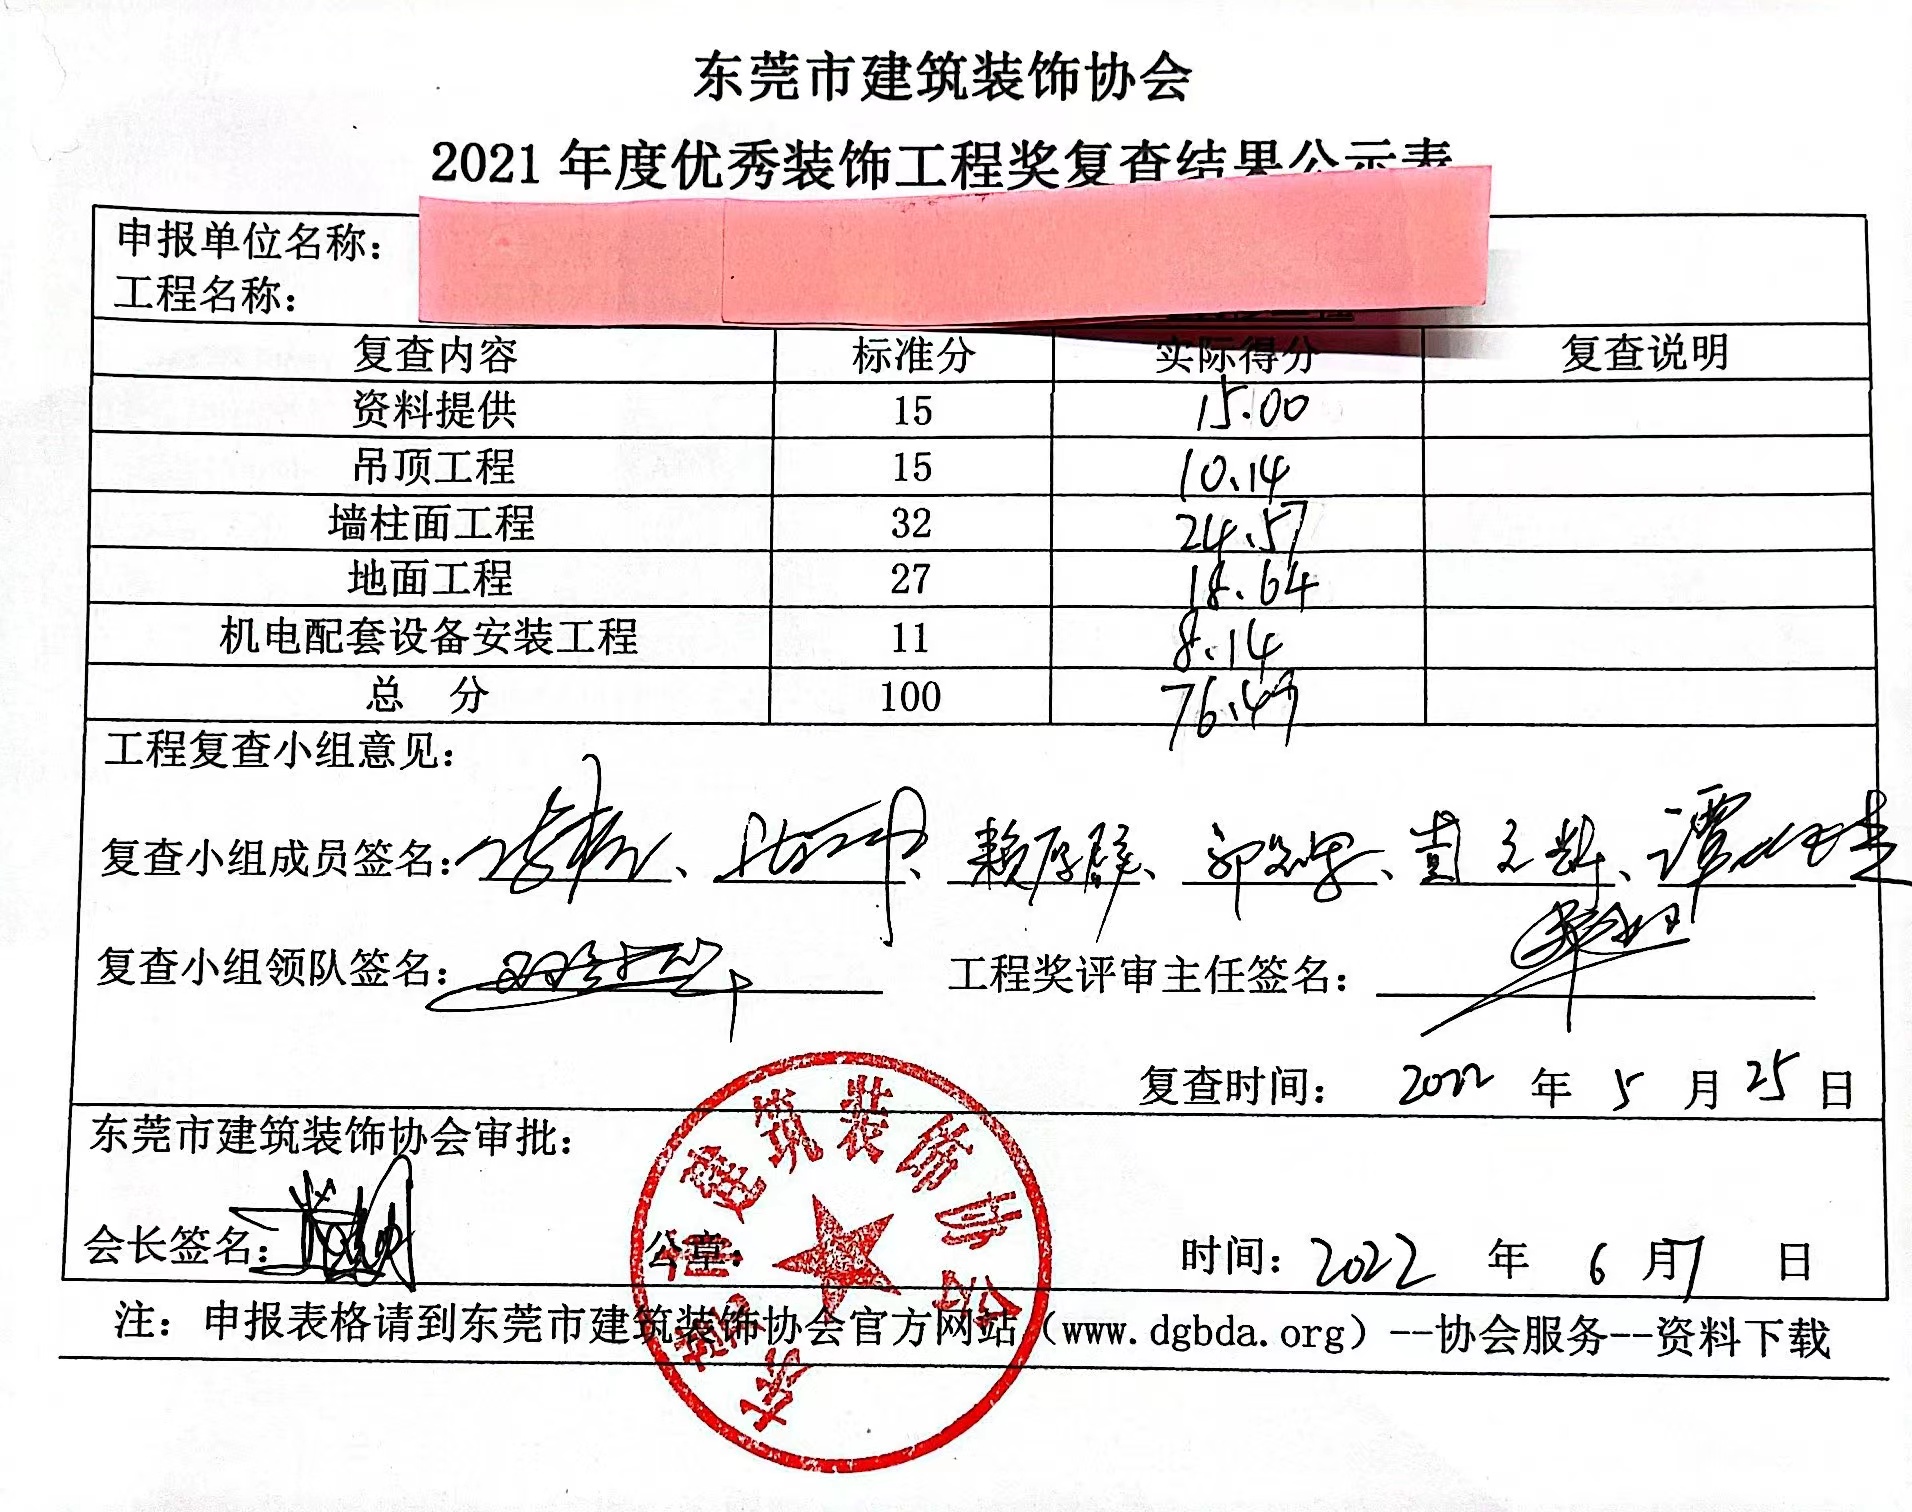 东莞市建筑装饰协会
2021 年度优秀装饰工程奖复查结果公示表
申报单位名称：
工程名称：
复查内容 标准分 实际得分 复查说明
资料提供 15 15.00
吊顶工程 15 10.14
墙柱面工程 32 24.57
地面工程 27 18.64
机电配套设备安装工程 11 8.14
总 分 100 76.47
工程复查小组意见：
复查小组成员签名： 、 、 赖厚 、 郭 、 黄文 、 谭
复查小组领队签名： 工程奖评审主任签名：
复查时间： 2022 年 5 月 25 日
东莞市建筑装饰协会审批：
会长签名： 公章： 时间：2022 年 6 月7 日
东莞市建筑装饰协会
注：申报表格请到东莞市建筑装饰协会官方网站（www.dgbda.org）--协会服务--资料下载